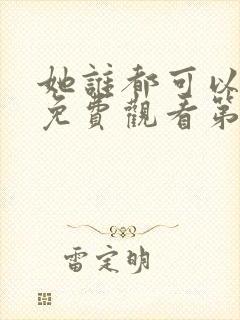 她誰都可以
免費觀看第
雷定明